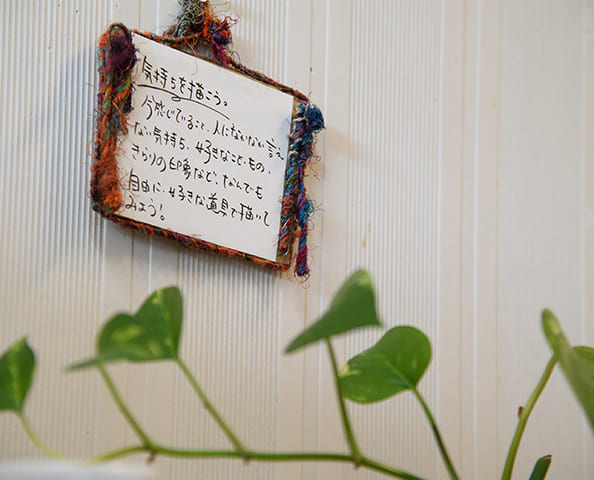 気持ちを描こう。
今感じていること、人になかなか言え
ない気持ち、好きなこと・もの、
きらりの印象など、なんでも
自由に、好きな道具で描いて
みよう!